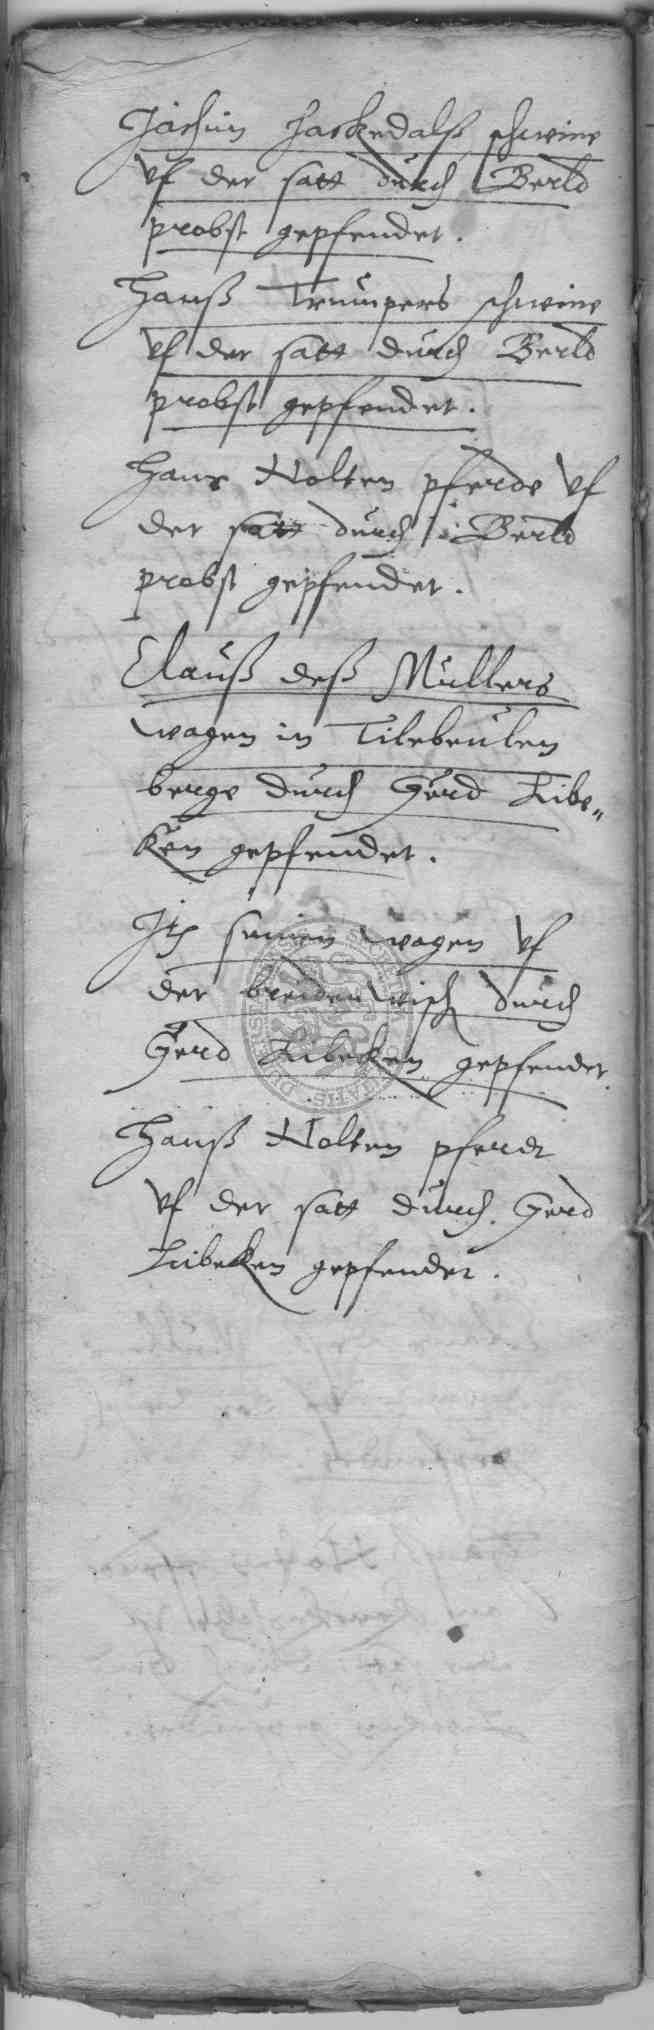 Jochim Hackedalß schwine
vf der satt durch Berld
probst gepfendet.
Hanß Trumpers schwine
vf der satt durch Berld
probst gepfendet.
Hans Nolten pferde vf
der satt durch Berld
probst gepfendet.
Clauß deß Müllers
wagen in Tilebeulen
berge durch Gerd Libe„
ken gepfendet.
Jtz seinen wagen vf
der breiden wisch durch
Gerd Libecken gepfendet.
Hanß Nolten pferdt
vf der satt durch Gerd
Libeken gepfendet.